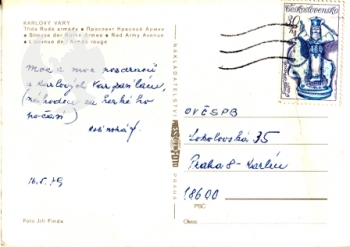 KARLOVY VARY
Třída Rudé armády • Проспект Красной Армии
Strasse der Roten Armee • Red Army Avenue
L'avenue de l'Armée rouge
Moc a moc pozdravů
z Karlových Var posílám,
(náhodou za hezkého
počasí)
16. 5. 79
Foto Jiří
NAKLADATELSTVÍ
PRAHA
Československo
30
OVČSPB
Sokolovská 35
Praha 8 - Karlín
18600
PSČ
Okres